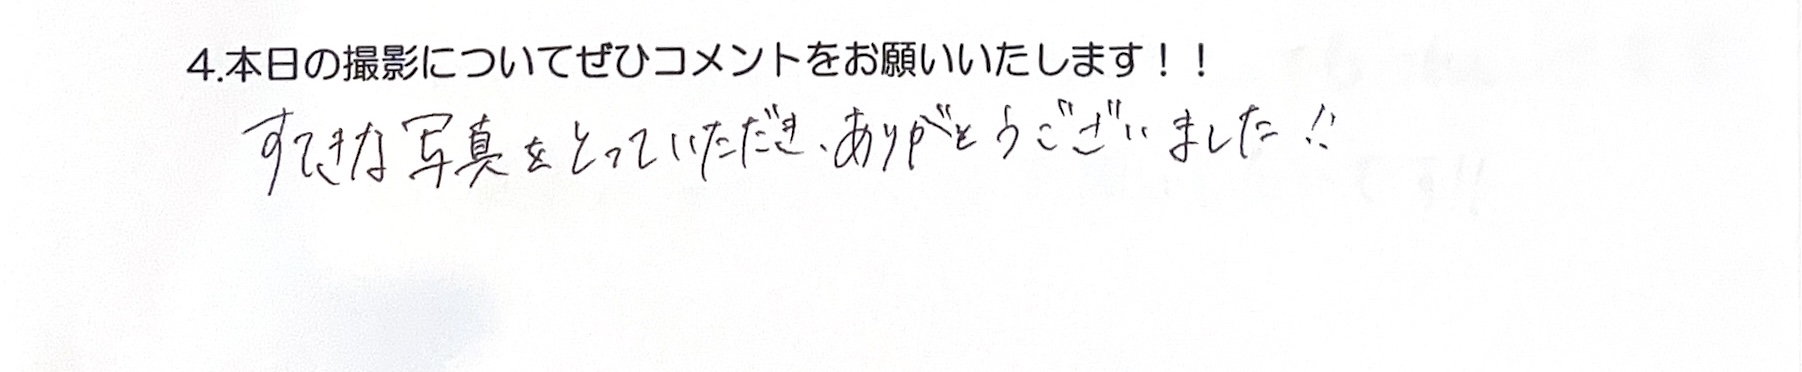 4.本日の撮影についてぜひコメントをお願いいたします！！
すてきな写真をとっていただき、ありがとうございました!!